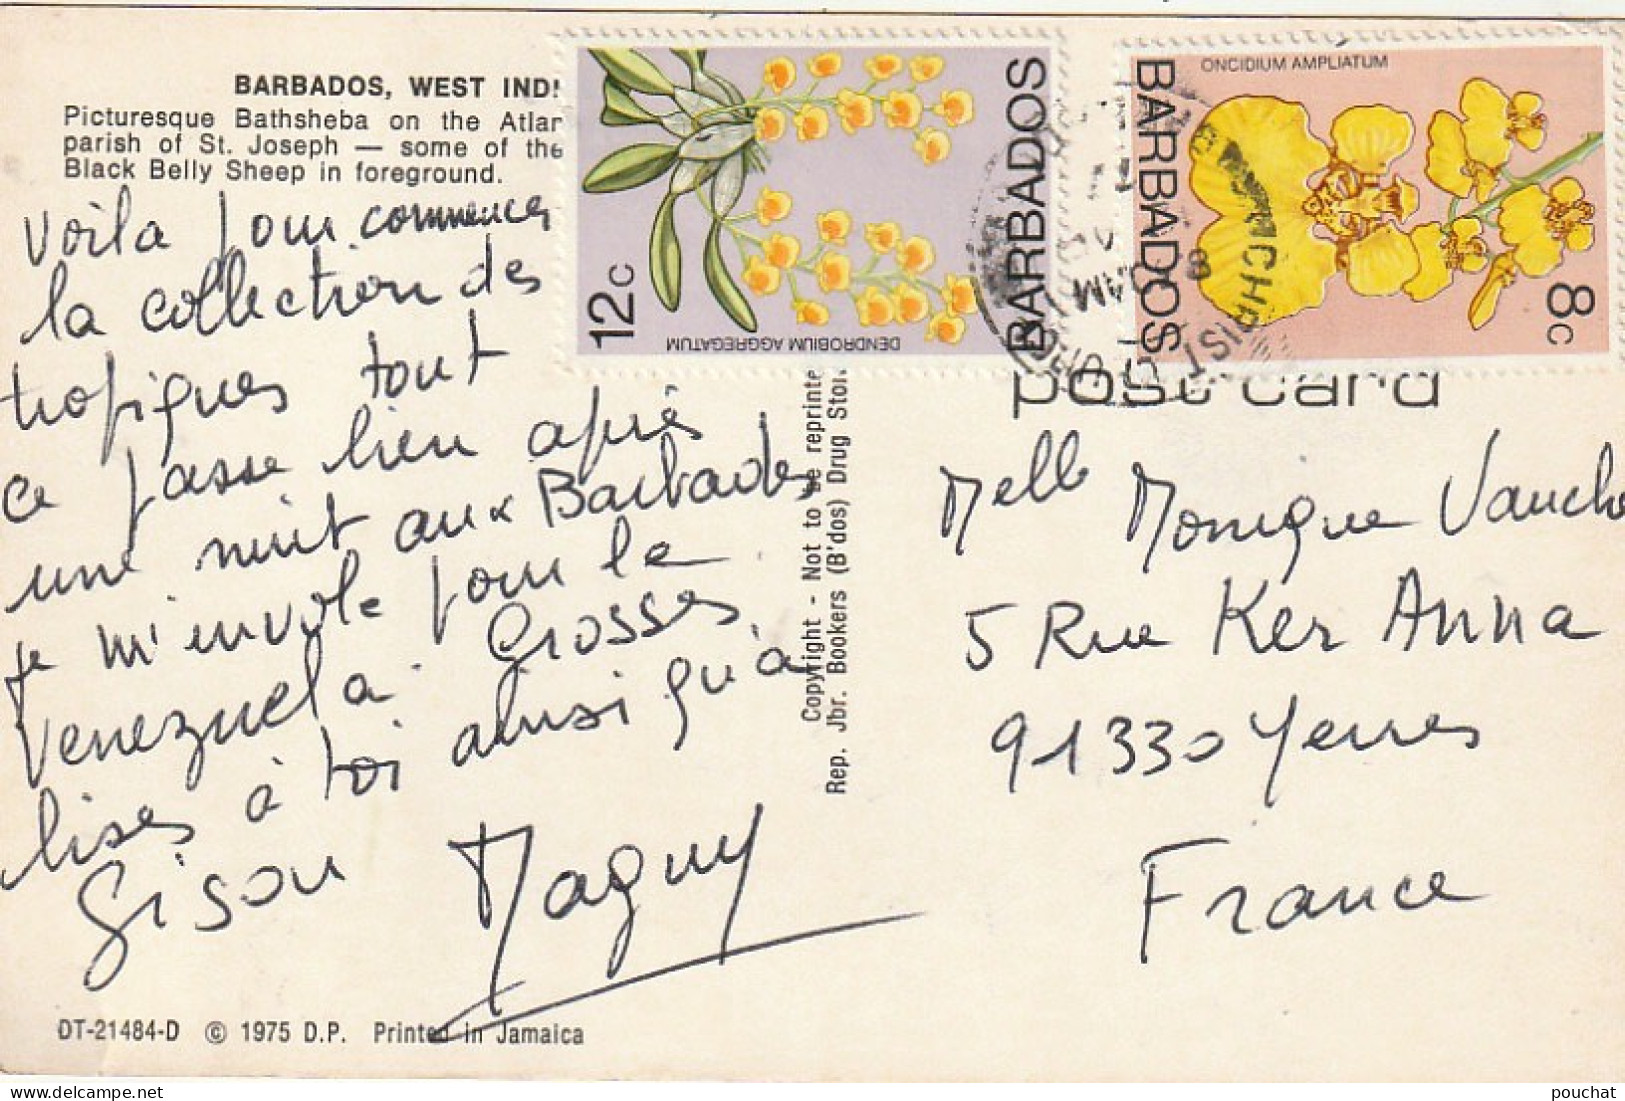 BARBADOS, WEST INDI
Picturesque Bathsheba on the Atlan
parish of St. Joseph — some of the
Black Belly Sheep in foreground.
Voila pour commencer
la collection des
tropiques tout
ce passe bien après
une nuit aux Barbades
je m'envole pour le
Venezuela. Grosses
bises à toi ainsi qu'à
Gison Maguy
DT-21484-D © 1975 D.P. Printed in Jamaica
Copyright - Not to be reprinte
Rep. Jbr. Bookers (B'dos) Drug Stor
12c
DENDROBIUM AGGREGATUM
BARBADOS
BARBADOS
ONCIDIUM AMPLIATUM
8c
CHRIST
AM
post card
Melle Monique Vauche
5 Rue Ker Anna
91330 Yerres
France
pouchat